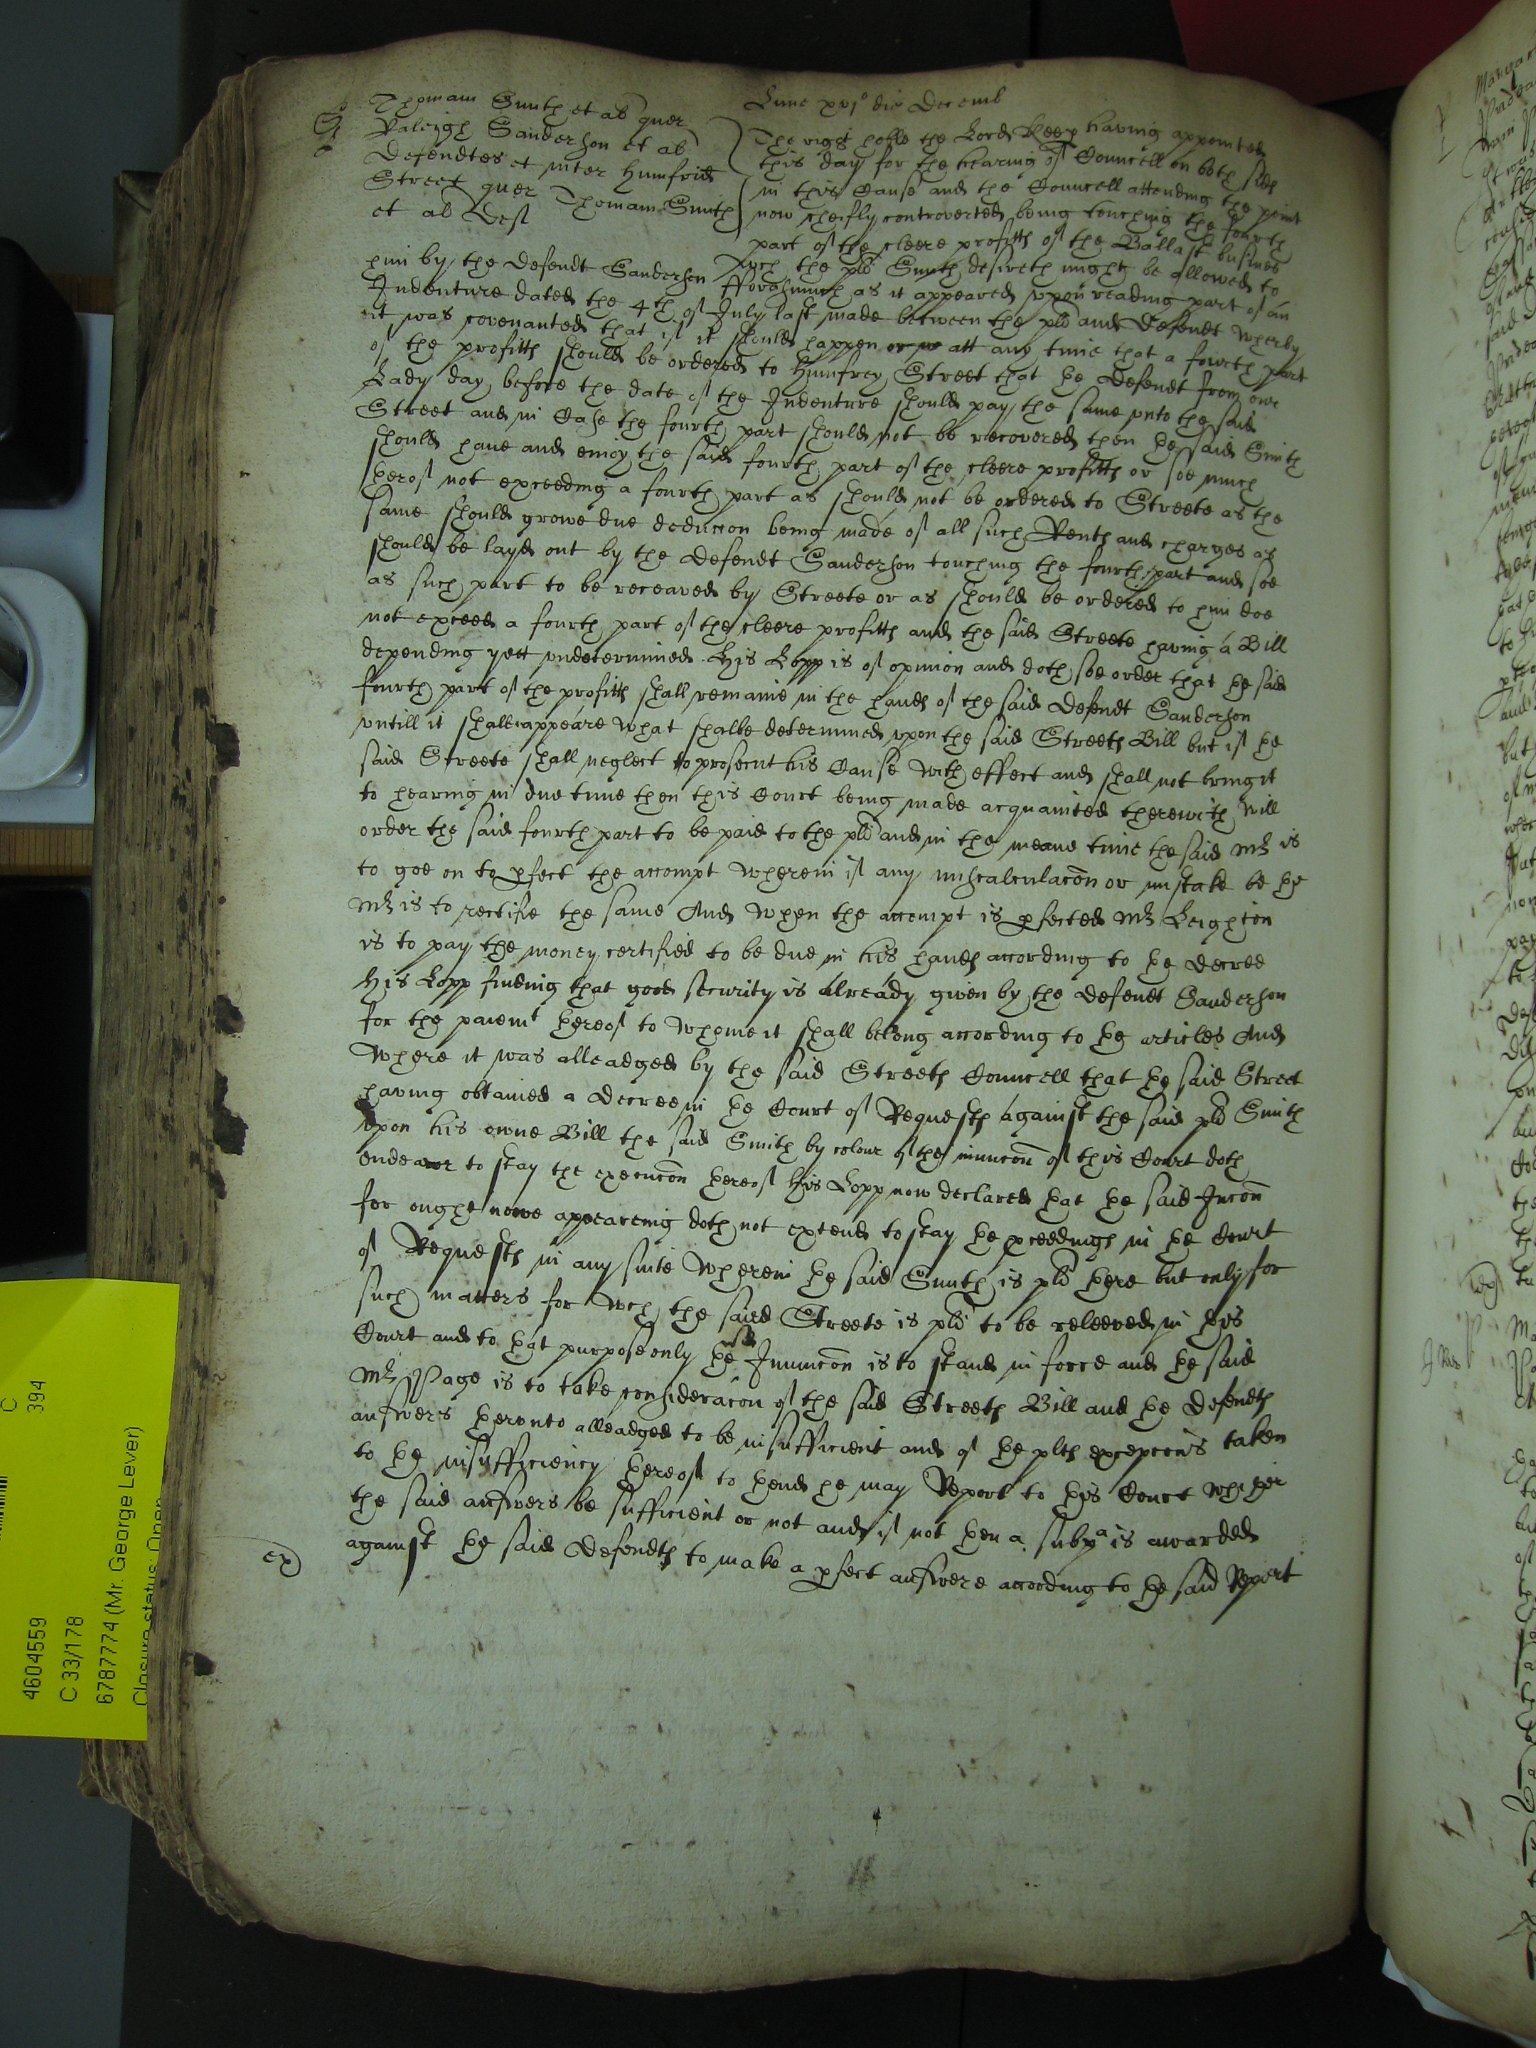 Lune xvjo die Decemb
S Thomam Smith et al quer
Raleigh Sanderson et al
Defendtes et inter Humfrid
Street quer Thomam Smith
et al Def
The right hoble the Lord Keep having appointed
this day for the hearing of Councell on both sids
in this Cause and the Councell attending the point
now cheifly controverted being touching the fourth
part of the cleere profitts of the Ballast busines
wch the pls Smith desireth might be allowed to
him by the Defendt Sanderson fforasmuch as it appeared upon reading part of an
Indenture dated the 4th of July last made betweene the pls and Defendt wherby
it was covenanted that if it should happen att any time that a fourth part
of the profitts should be ordered to Humfrey Street that ye Defendt from our
Lady day before the date of the Indenture should pay the same unto the said
Street and in Case the fourth part should not be recovered then ye said Smith
should have and enioy the said fourth part of the cleere profitts or soe much
yerof not exceeding a fourth part as should not be ordered to Streete as the
same should growe due deduccon being made of all such Rents and charges as
should be layd out by the Defendt Sanderson touching the fourth part and soe
as such part to be receaved by Streete or as should be ordered to him doe
not exceed a fourth part of the cleere profitts and the said Streete having a Bill
depending yett undetermined. His Lopp is of opinion and doth soe order that ye said
fourth part of the profitts shall remaine in the hands of the said Defendt Sanderson
untill it shall appeare what shalbe determined upon the said Streets Bill but if ye
said Streete shall neglect to prosecut his Cause with effect and shall not bring it
to hearing in due time then this Court being made acquainted therewith will
order the said fourth part to be paid to the pls and in the meane time the said Mr is
to goe on to pfect the accompt wherein if any miscalculacon or mistake be ye
Mr is to rectifie the same And when the accompt is pfected Mr Leighton
is to pay the money certified to be due in his hands according to ye decree
His Lopp finding that good security is already given by the Defendt Sanderson
for the paiemt yereof to whome it shall belong according to ye articles And
where it was alleadged by the said Streets Councell that ye said Street
having obtained a decree in ye Court of Requests against the said pls Smith
upon his owne Bill the said Smith by colour of the iniuncon of this Court doth
endeavor to stay the execucon yereof His Lopp now declared yat ye said Iniuncon
for ought nowe appeareing doth not extend to stay ye pceedings in ye Court
of Requests in any suite wherein ye said Smith is pls yere but only for
such matters for wch the said Streete is pls to be releeved in yis
Court and to yat purpose only ye sd Iniuncon is to stand in force and ye said
Mr Page is to take consideracon of the said Streets Bill and ye Defendts
answers yerunto alleadged to be insufficient and of ye plts excepcons taken
to ye insufficiency yereof to yend he may Report to yis Court whether
the said answers be sufficient or not and if not yen a subpa is awarded
against ye said Defendts to make a pfect answere according to ye said Report
ex
C
394
4604559
C 33/178
6787774 (Mr. George Lever)
Closure status: Open